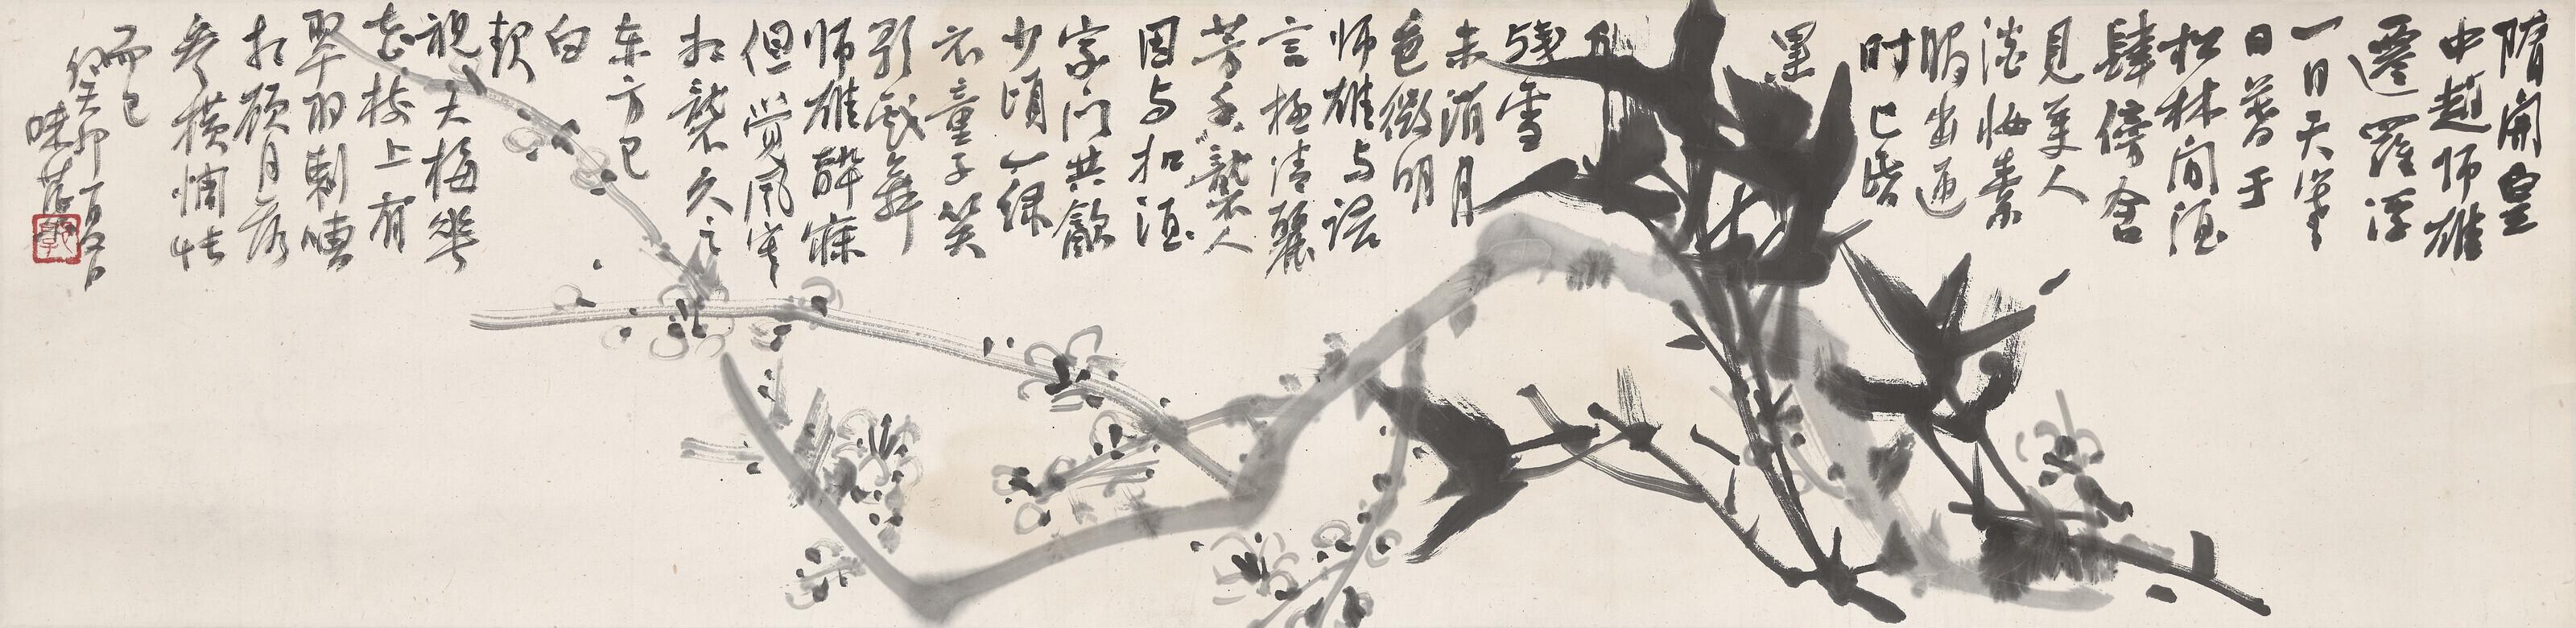 隋開皇
中趙师雄
遷羅浮
一日天寒
日暮于
松林间酒
肆傍舍
見美人
淡妝素
服出迎
时已昏
黑
对
残雪
未消月
色微明
师雄与语
言极清麗
芳香襲人
因与扣酒
家门共飲
少頃一绿
衣童子笑
歌戲舞
师雄醉寐
但觉风寒
相襲久之
东方已
白
視大梅花
枝上有
翠羽嘈
相顧月落
参横惆悵
而已
癸卯
味蕉
郭